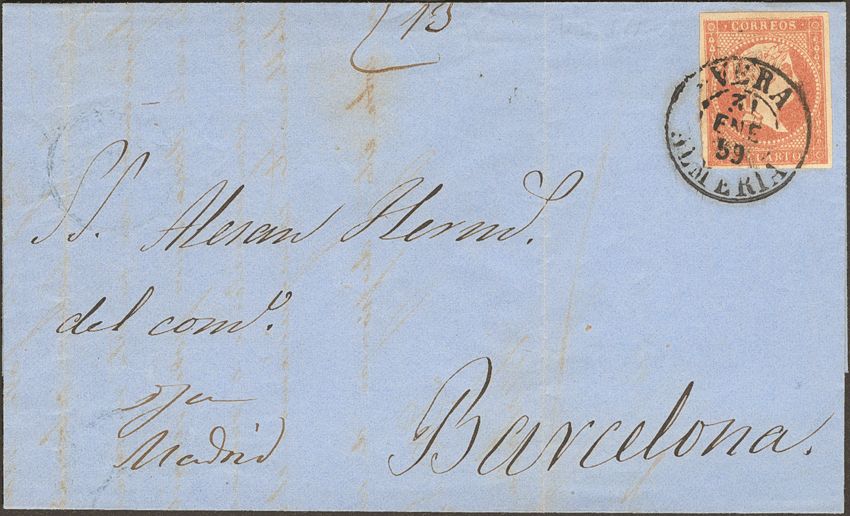 13
CORREOS
VERA
31
ENE
59
ALMERIA
S.S. Alesan Herms.
del comº.
Madrid
Barcelona.